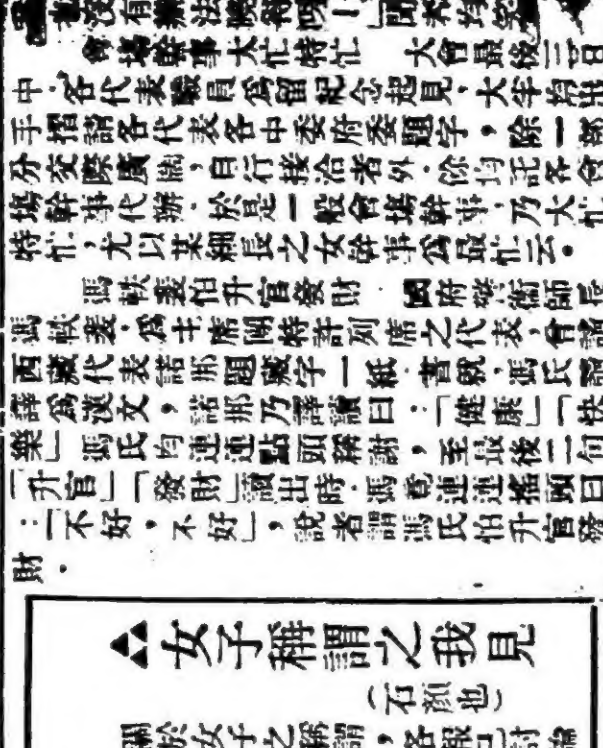 會場幹事大忙特忙　大會最後三日
中，各代表職員爲留紀念起見，大半均出
手摺請各代表各中委府委題字，除一部
分交際廣闊，自行接洽者外，餘均託各會
場幹事代辦，於是一般會場幹事，乃大忙
特忙，尤以某細長之女幹事爲最忙云。
馮軼裴怕升官發財　國府警衛師長
馮軼裴，爲主席團特許列席之代表，會請
西藏代表諾那題藏字一紙，書就，馮氏請
譯爲漢文，諾那乃譯讀曰：「健康」「快
樂」馮氏均連連點頭稱謝，至最後二句
「升官」「發財」讀出時，馮竟連連搖頭曰
：「不好，不好」，說者謂馮氏怕升官發
財．
女子稱謂之我見
（石顏也）
關於女子之稱謂，各報已討論